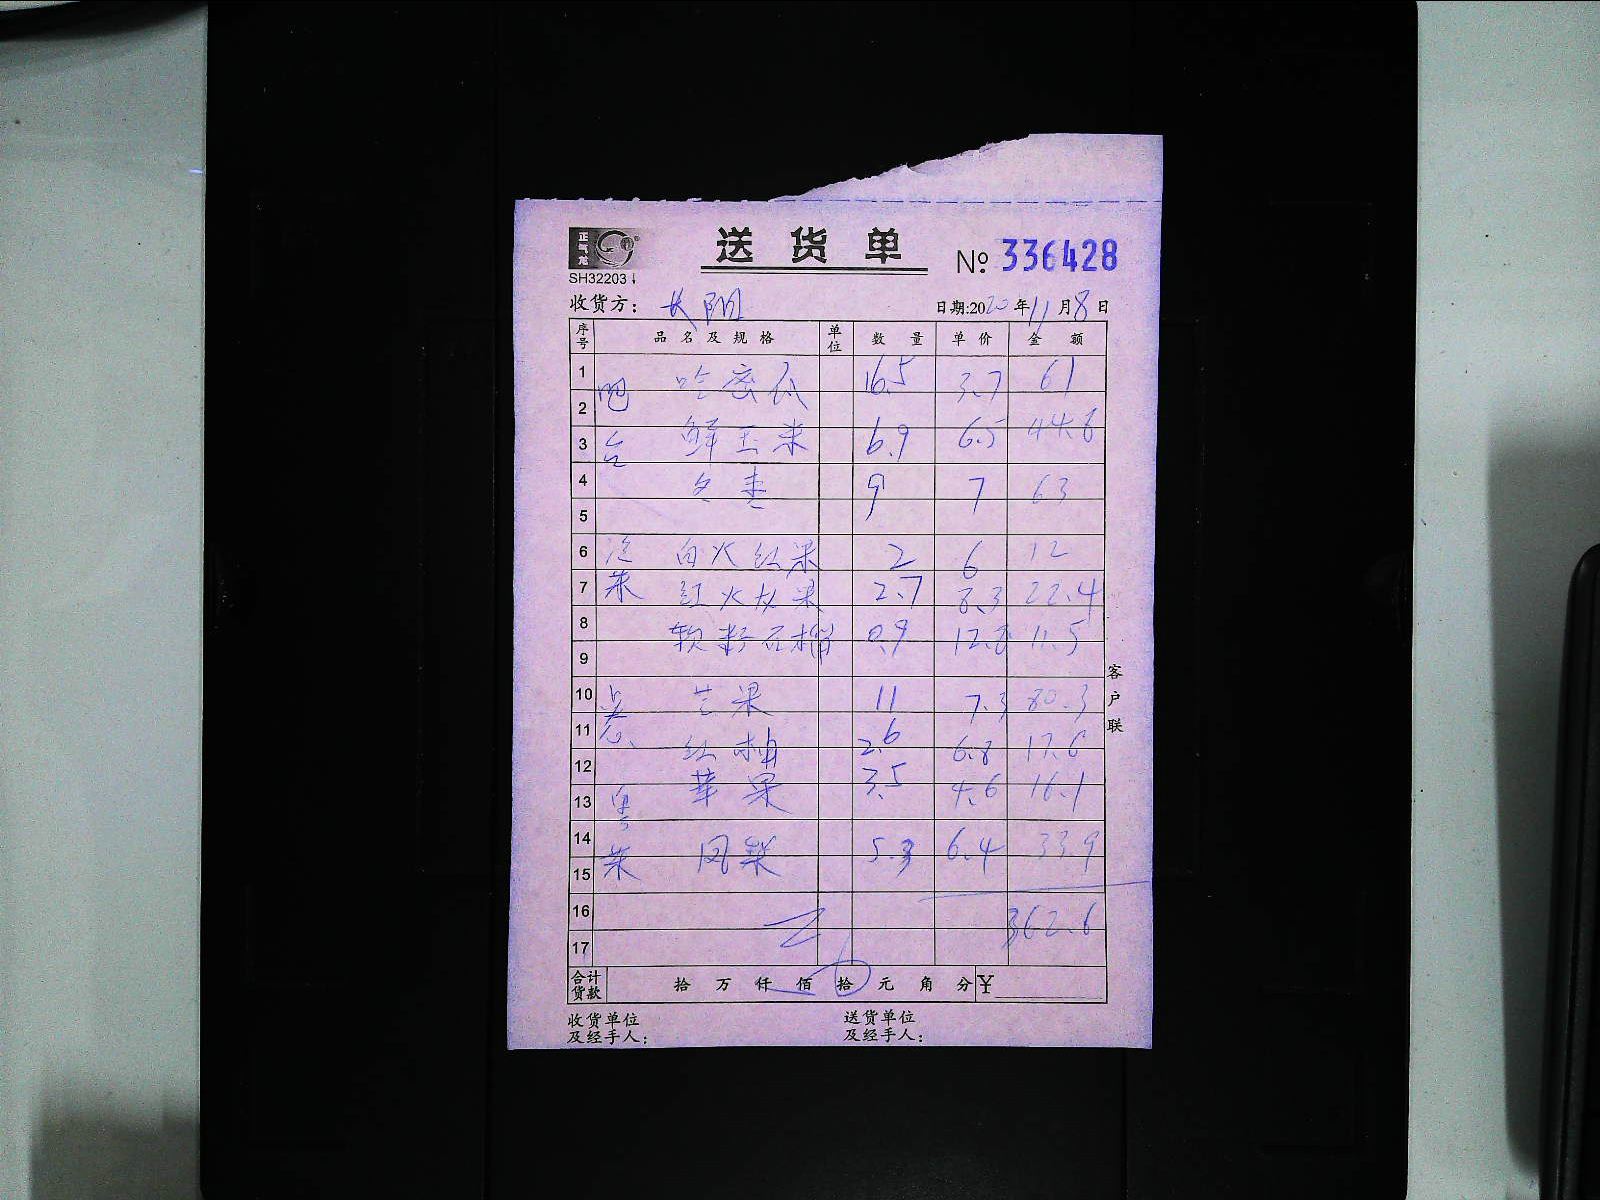 正气龙
SH32203
送货单
№ 336428
收货方: 长阳
日期:2020年11月8日
序号 品名及规格 单位 数量 单价 金额
1 吧 哈密瓜 16.5 3.7 61
2
3 台 鲜玉米 6.9 6.5 44.8
4 冬枣 9 7 63
5
6 凉 白火红果 2 6 12
7 菜 红火龙果 2.7 8.3 22.4
8 软籽石榴 0.9 12.8 11.5
9
10 芒果 11 7.3 80.3
11 红柚 2.6 6.8 17.6
12 苹果 3.5 4.6 16.1
13 粤
14 菜 凤梨 5.3 6.4 33.9
15
16 362.6
17
合计货款 拾 万 仟 佰 拾 元 角 分 ¥
收货单位及经手人:
送货单位及经手人:
客户联